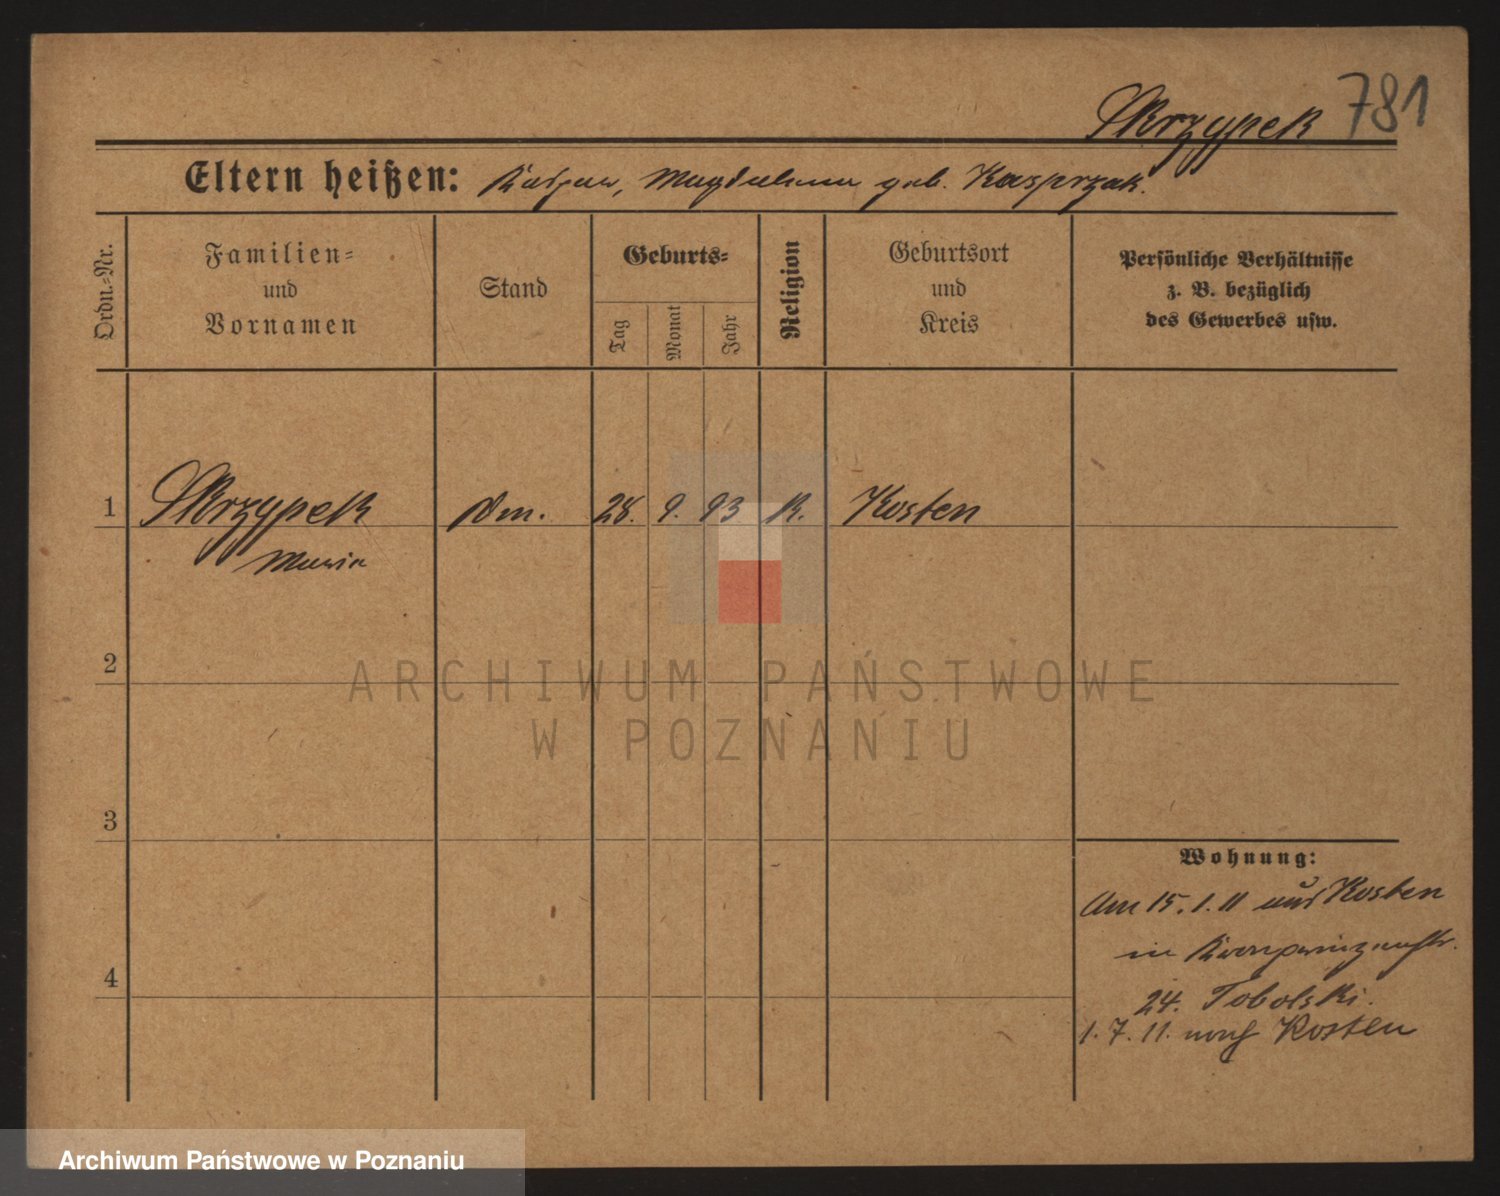 Skrzypek 781
Eltern heißen: Kaspar, Magdalena geb. Kasprzak.
Ordn.=Nr.
Familien=
und
Vornamen
Stand
Geburts=
Tag
Monat
Jahr
Religion
Geburtsort
und
Kreis
Persönliche Verhältnisse
z. B. bezüglich
des Gewerbes usw.
1 Skrzypek 28. 9. 93 K. Kosten
Maria
2
ARCHIWUM PAŃSTWOWE
W POZNANIU
3
Wohnung:
Am 15.1.11 aus Kosten
in Kronprinzenstr.
4
24. Tobolski.
1.7.11. nach Kosten
Archiwum Państwowe w Poznaniu